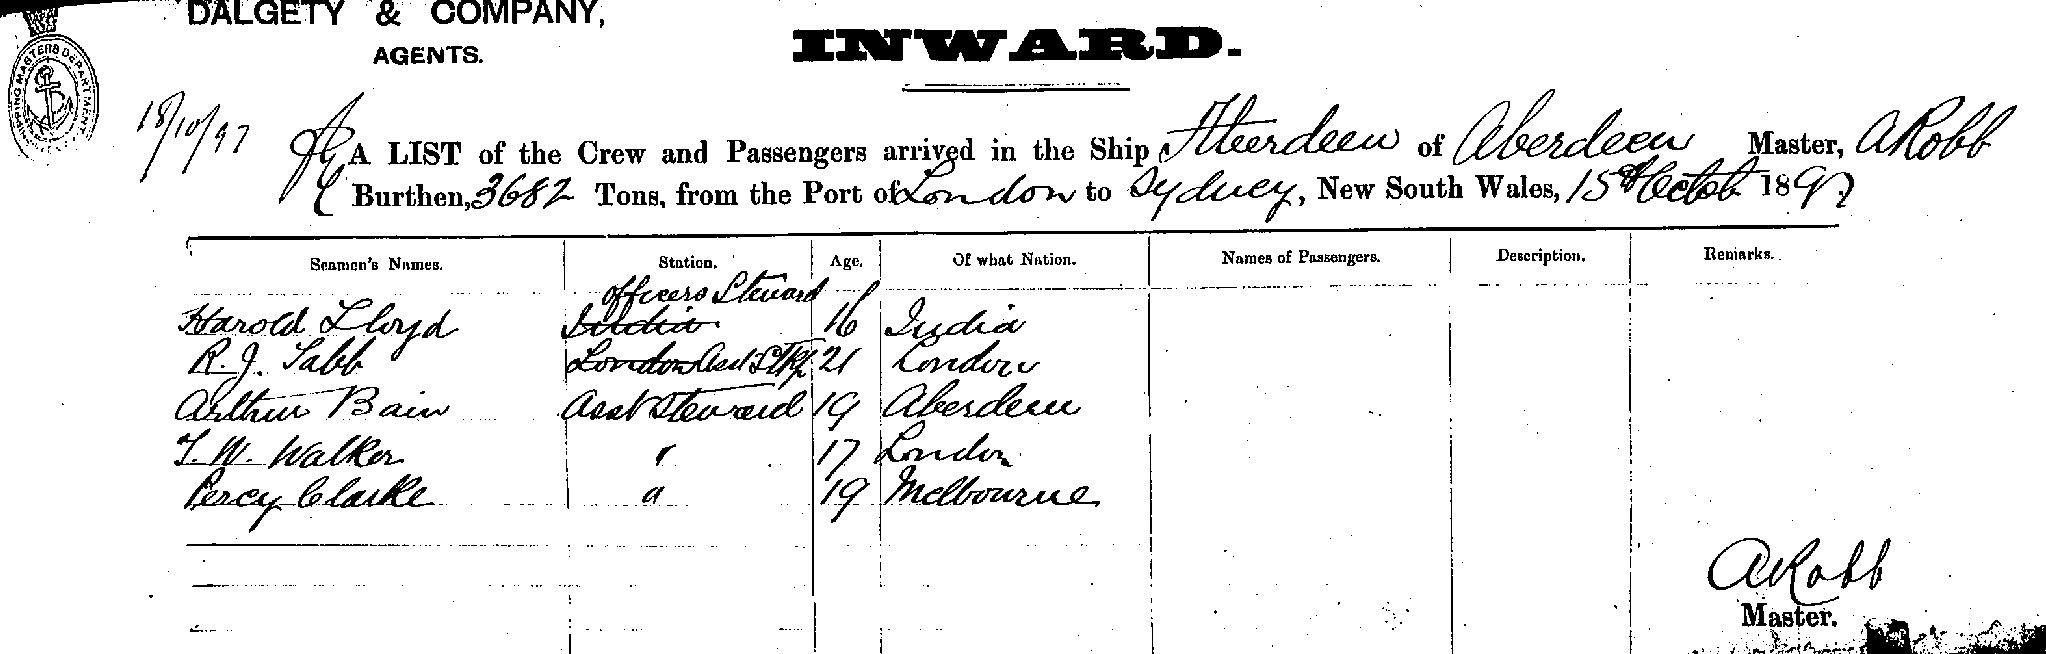 DALGETY & COMPANY,
AGENTS.
INWARD.
SHIPPING MASTERS DEPARTMENT
18/10/97
A LIST of the Crew and Passengers arrived in the Ship Aberdeen of Aberdeen Master, A Robb
Burthen, 3682 Tons, from the Port of London to Sydney, New South Wales, 15th Octob 1897
Seamen's Names. Station. Age. Of what Nation. Names of Passengers. Description. Remarks.
Officers Steward
Harold Lloyd India 16 India
R. J. Tabb London Asst Stkp 21 London
Arthur Bain Asst Steward 19 Aberdeen
T. W. Walker " 17 London
Percy Clarke " 19 Melbourne
A Robb
Master.